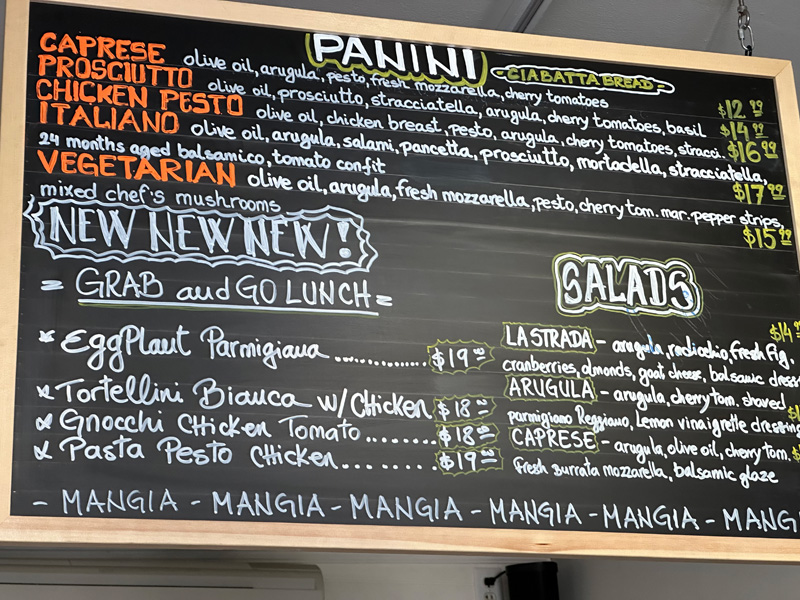 PANINI - CIABATTA BREAD -
CAPRESE olive oil, arugula, pesto, fresh mozzarella, cherry tomatoes $12.99
PROSCIUTTO olive oil, prosciutto, stracciatella, arugula, cherry tomatoes, basil $14.99
CHICKEN PESTO olive oil, chicken breast, pesto, arugula, cherry tomatoes, stracci. $16.99
ITALIANO olive oil, arugula, salami, pancetta, prosciutto, mortadella, stracciatella,
24 months aged balsamico, tomato con-fit $17.99
VEGETARIAN olive oil, arugula, fresh mozzarella, pesto, cherry tom. mar. pepper strips,
mixed chef's mushrooms $15.99
NEW NEW NEW!
= GRAB and GO LUNCH =
* EggPlant Parmigiana ............ $19
* Tortellini Bianca w/ Chicken $18
* Gnocchi Chicken Tomato ........ $18
* Pasta Pesto Chicken .......... $19
SALADS
$14
LA STRADA - arugula, radicchio, fresh fig,
cranberries, almonds, goat cheese, balsamic dress
ARUGULA - arugula, cherry tom, shaved
parmigiano Reggiano, Lemon vinaigrette dressing
CAPRESE - arugula, olive oil, cherry tom. $
fresh burrata mozzarella, balsamic glaze
- MANGIA - MANGIA - MANGIA - MANGIA - MANGIA - MANG